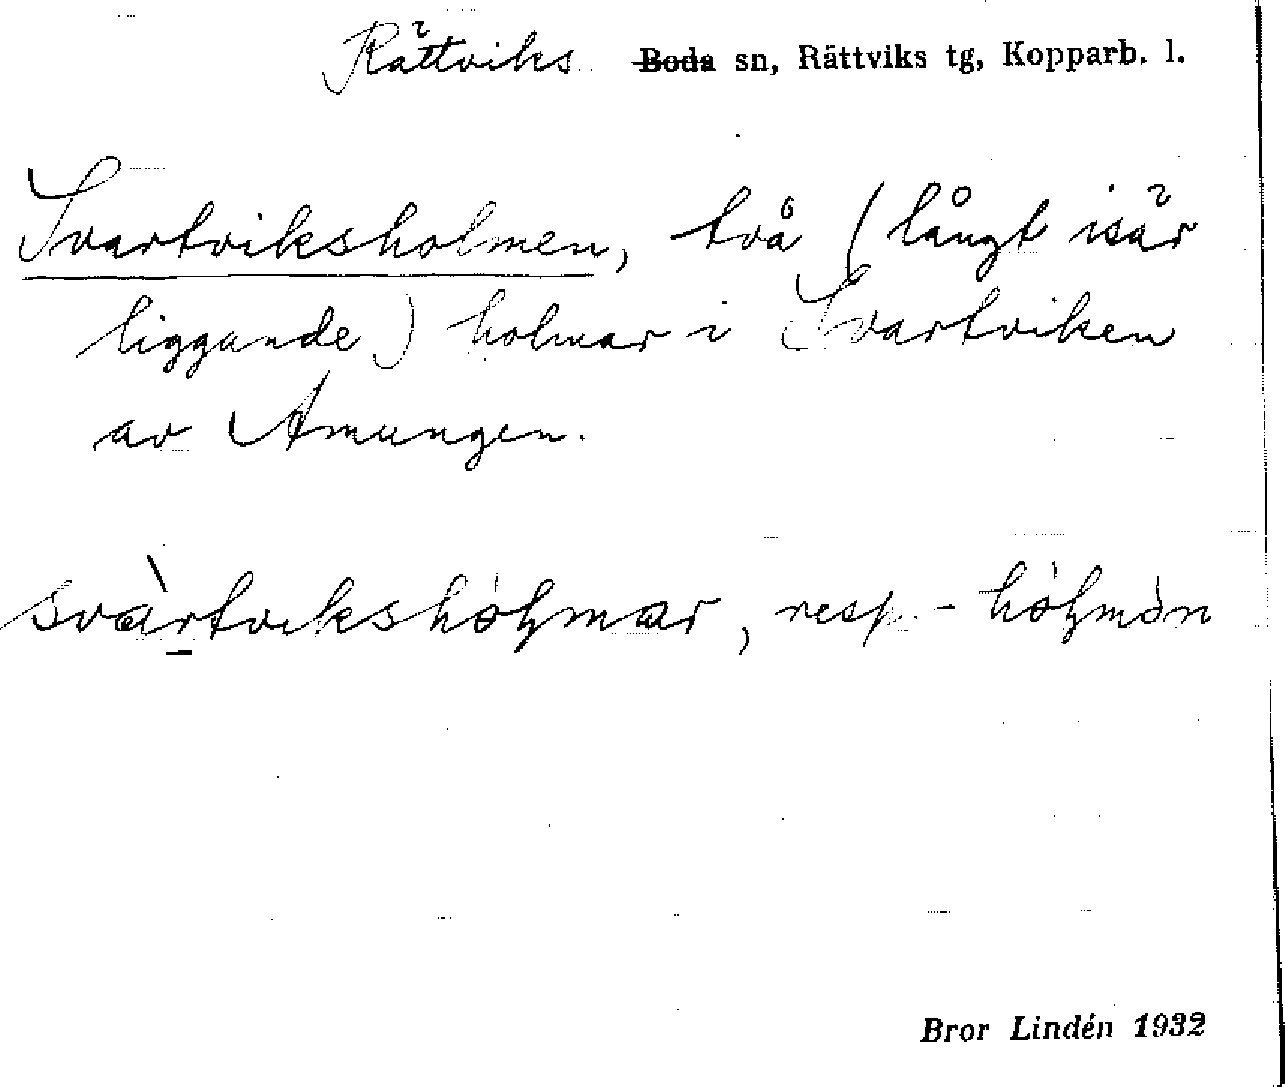 Rättviks Boda sn, Rättviks tg, Kopparb. l.
Svartviksholmen, två (långt isär
liggande) holmar i Svartviken
av Amungen.
svàrtvikshòɫmar, resp. - hòɫmòn
Bror Lindén 1932